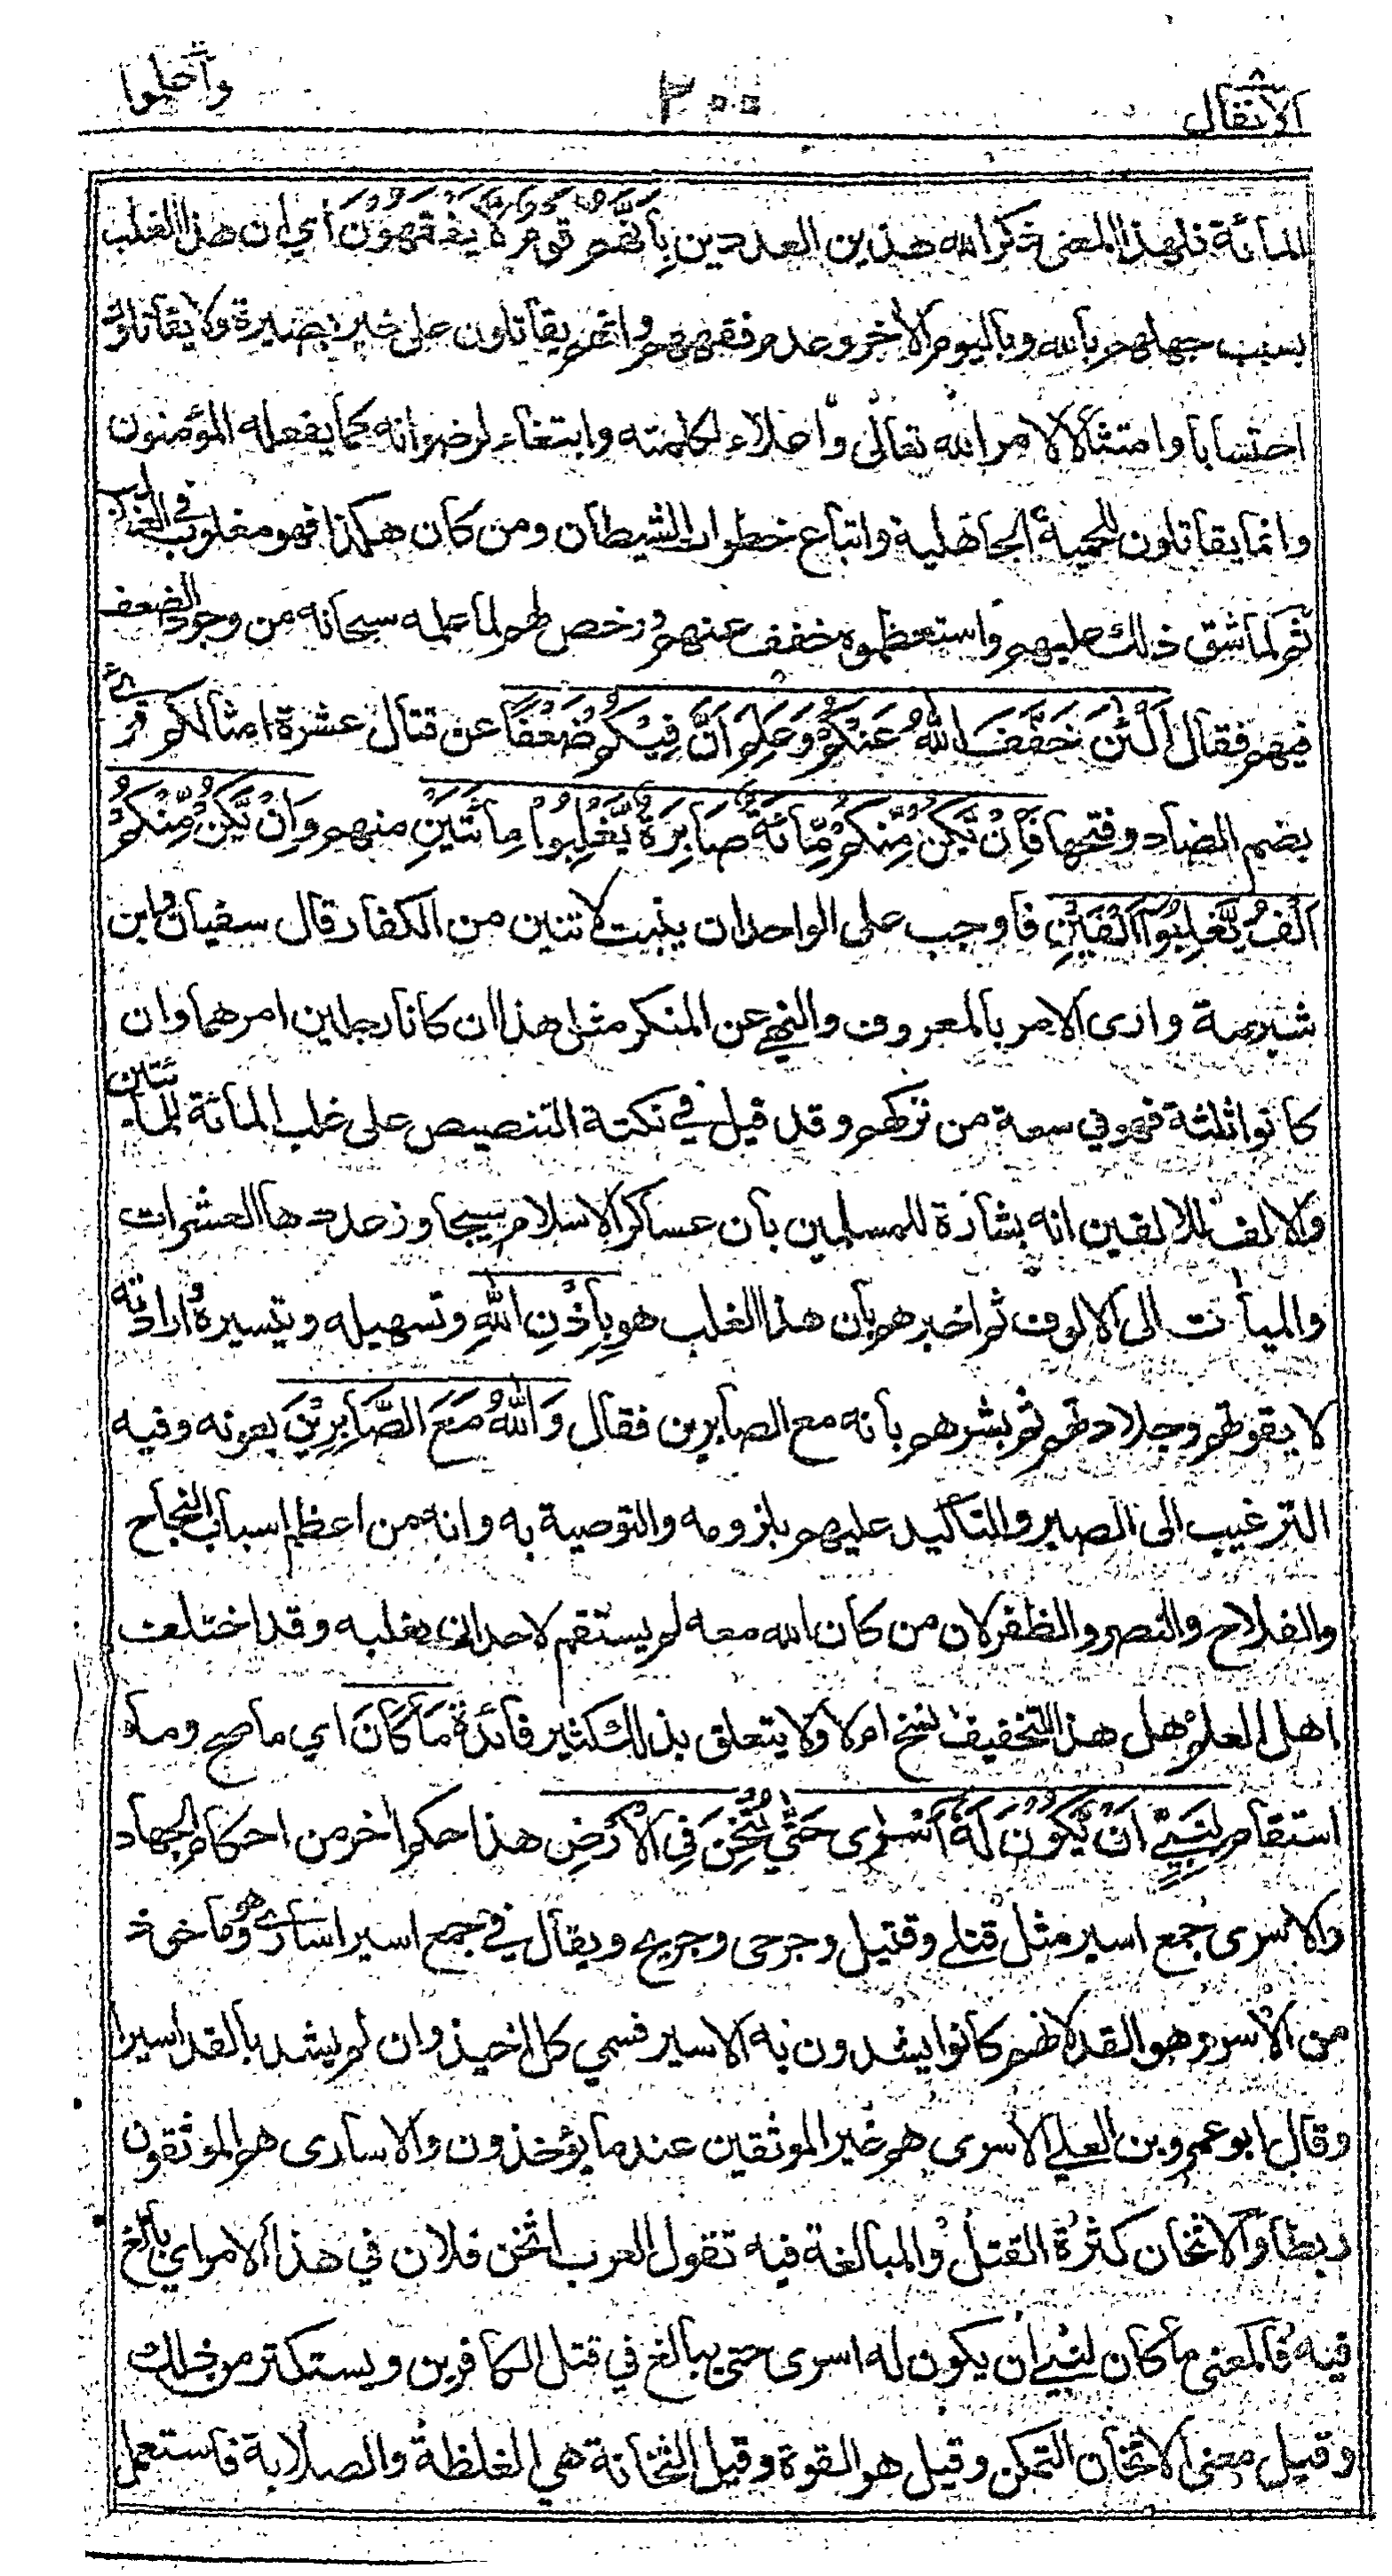 الأنفال ٢٠٠ واعلموا
المائة فلهذا المعنى ذكر الله هذين العددين بِأَنَّهُمْ قَوْمٌ لَّا يَفْقَهُوْنَ أي ان هذا الغلب
بسبب جهلهم بالله وباليوم الأخر وعدم فقههم وانهم يقاتلون على غير بصيرة ولا يقاتلون
احتسابا وامتثالا لامر الله تعالى واعلاء لكلمته وابتغاء لرضوانه كما يفعله المؤمنون
وانما يقاتلون للحمية الجاهلية واتباع خطوات الشيطان ومن كان هكذا فهو مغلوب في الغالب
ثم لما شق ذلك عليهم واستعظموه خفف عنهم ورخص لهم لما علمه سبحانه من وجود الضعف
فيهم فقال اَلْئٰنَ خَفَّفَ اللّٰهُ عَنْكُمْ وَعَلِمَ اَنَّ فِيْكُمْ ضَعْفًا عن قتال عشرة امثالكم قرئ
بضم الضاد وفتحها فَاِنْ يَّكُنْ مِّنْكُمْ مِّائَةٌ صَابِرَةٌ يَّغْلِبُوْا مِائَتَيْنِ منهم وَاِنْ يَّكُنْ مِّنْكُمْ
اَلْفٌ يَّغْلِبُوْا اَلْفَيْنِ فاوجب على الواحد ان يثبت لاثنين من الكفار قال سفيان وابن
شبرمة وارى الامر بالمعروف والنهي عن المنكر مثل هذا ان كانا رجلين امرهما وان
كانوا ثلثة فهو في سعة من تركهم وقد قيل في نكتة التنصيص على غلب المائة للمائتين
والالف للالفين انه بشارة للمسلمين بان عساكر الاسلام سيجاوز عددها العشرات
والميأت الى الالوف ثم اخبرهم بان هذا الغلب هو بِاِذْنِ اللّٰهِ وتسهيله وتيسيره وارادته
لا بقوتهم وجلادتهم ثم بشرهم بانه مع الصابرين فقال وَاللّٰهُ مَعَ الصَّابِرِيْنَ بعونه وفيه
الترغيب الى الصبر والتاكيد عليهم بلزومه والتوصية به وانه من اعظم اسباب النجاح
والفلاح والنصر والظفر لان من كان الله معه لم يستقم لاحد ان يغلبه وقد اختلف
اهل العلم هل هذا التخفيف نسخ ام لا ولا يتعلق بذلك كثير فائدة مَا كَانَ اي ما صح وما
استقام لِنَبِيٍّ اَنْ يَّكُوْنَ لَهٗ اَسْرٰى حَتّٰى يُثْخِنَ فِى الْاَرْضِ هذا حكم اخر من احكام الجهاد
والاسرى جمع اسير مثل قتلى وقتيل وجرحى وجريح ويقال في جمع اسير اسارى وهو ماخوذ
من الاسر وهو القد لانهم كانوا يشدون به الاسير فسمي كل اخيذ وان لم يشد بالقد اسيرا
وقال ابو عمرو بن العلى الاسرى هم غير الموثقين عند ما يؤخذون والاسارى هم الموثقون
ربطا والاثخان كثرة القتل والمبالغة فيه تقول العرب اثخن فلان في هذا الامر اي بالغ
فيه فالمعنى ما كان لنبي ان يكون له اسرى حتى يبالغ في قتل الكافرين ويستكثر من ذلك
وقيل معنى الاثخان التمكن وقيل هو القوة وقيل الثخانة هي الغلظة والصلابة فاستعمل